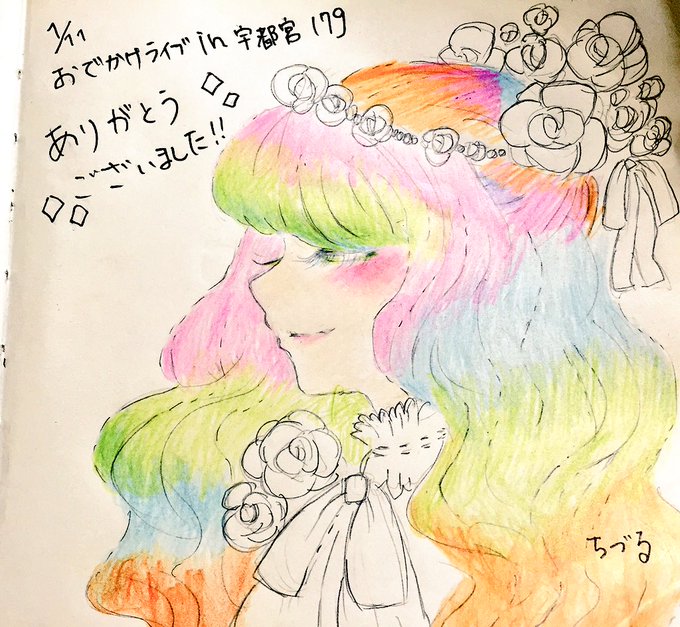 1/11
おでかけライブin宇都宮 179
ありがとう
ございました!!
ちづる